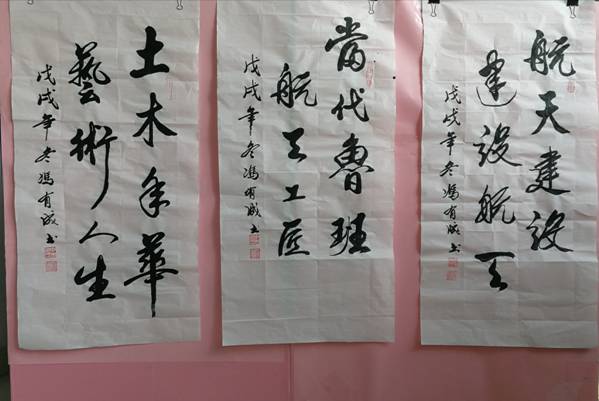 航天建设
建设航天
戊戌年冬馮有成书
當代魯班
航天工匠
戊戌年冬馮有成书
土木年華
藝術人生
戊戌年冬馮有成书